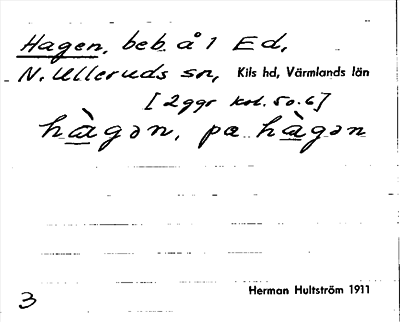 Hagen, beb. å 1 Ed,
N. Ulleruds sn, Kils hd, Värmlands län
[2 ggr kol. 50.6]
hàgən, pa hàgən
3 Herman Hultström 1911